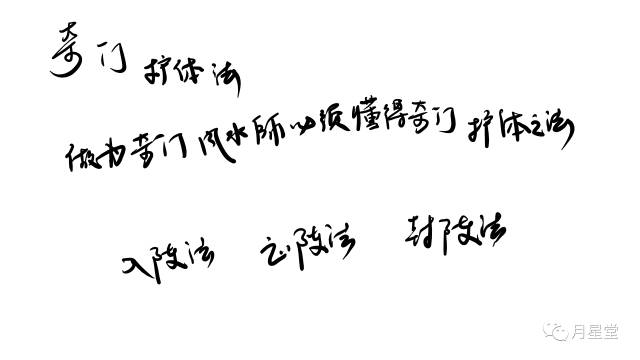 奇门护体法
做为奇门风水師必须懂得奇门护体之法
入阵法 出阵法 封阵法
月星堂